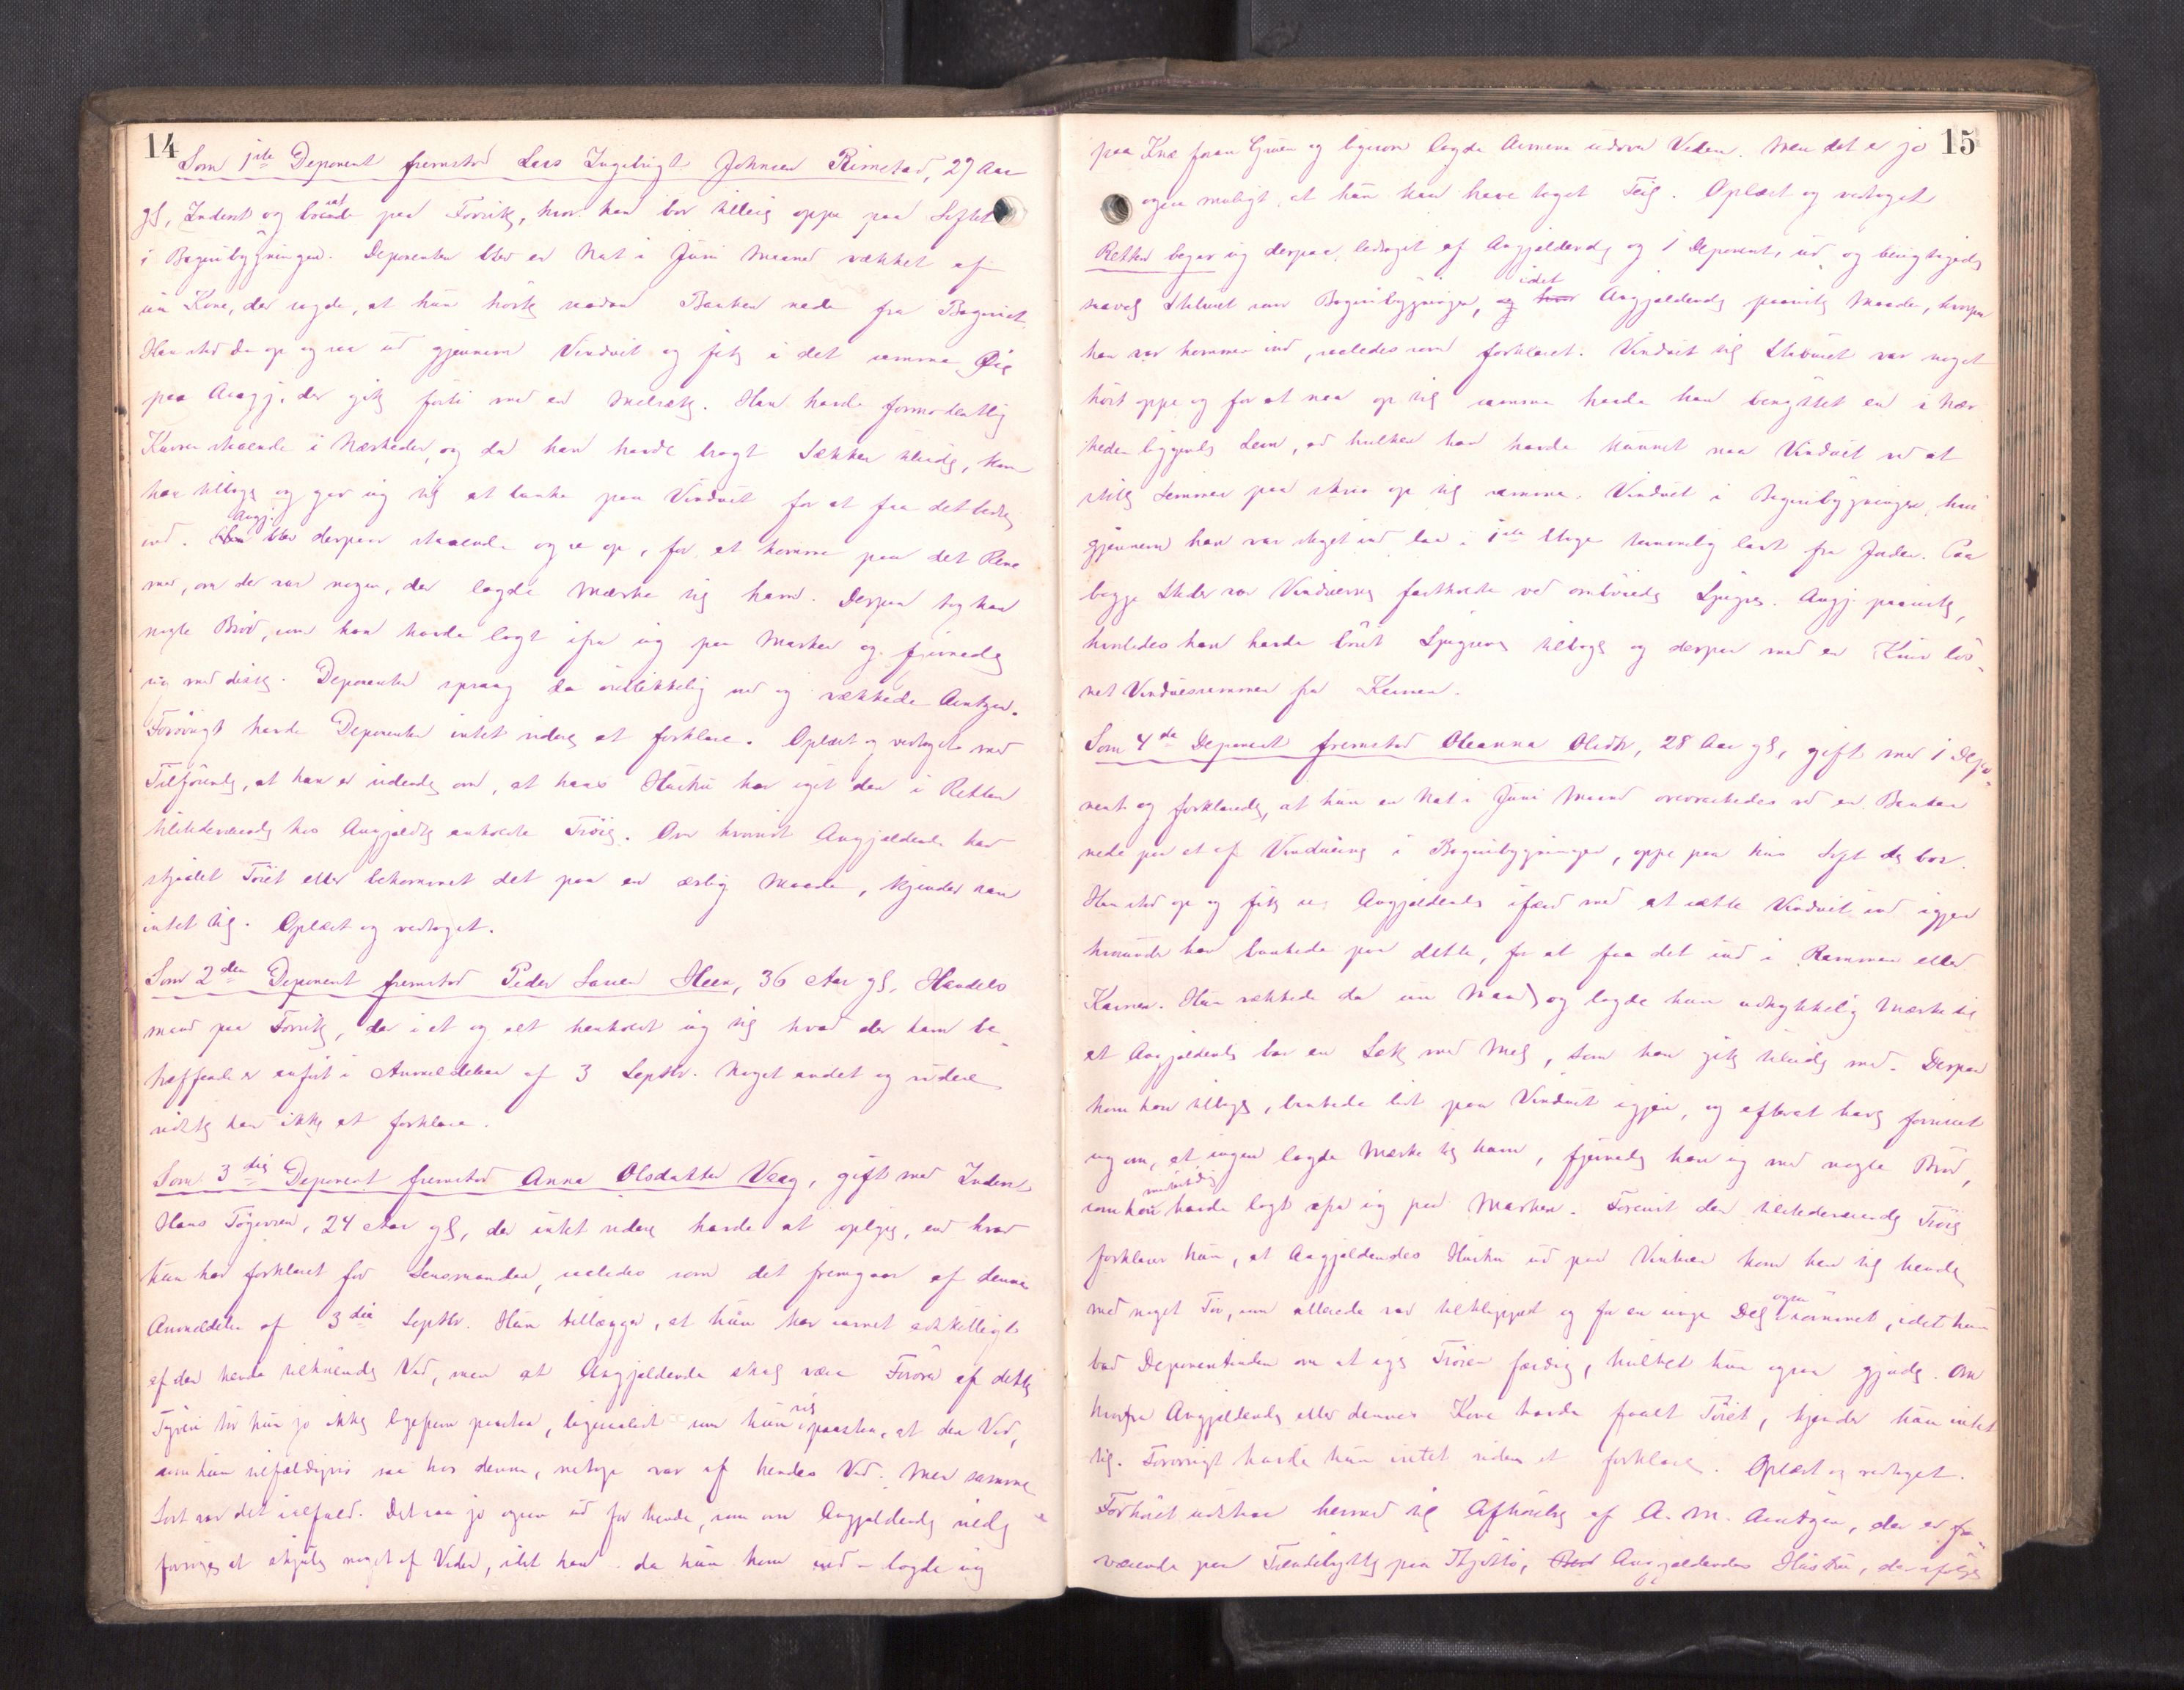 14
Som 1ste Deponent fremstod Lars Ingebrigt Johnsen Rimstad, 27 Aar
gl, Inderst og boende paa Forvik, hvor han bor tilleig oppe paa Loftet
i Bageribygningen. Deponenten blev en Nat i Juni Maaned vækket af
sin Kone, der sagde, at hun hørte saadan Banken nede fra Bageriet.
Han stod da op og saa ud gjennem Vinduet og fik i det samme Øie
paa Angj. der gik forbi med en Melsæk. Han havde formodentlig
Kjærren staaende i Nærheden, og da han havde bragt Sækken tilside, kom
han tilbage og gav sig til at banke paa Vinduet for at faa det bedre
ind. Angj. blev derpaa staaende og se op, for at komme paa det Rene
med, om der var nogen, der lagde Mærke til ham. Derpaa tog han
nogle Brød, som han havde lagt ifra sig paa Marken og fjernede
sig med disse. Deponenten sprang da øieblikkelig ned og vækkede Arntzen.
Forøvrigt havde Deponenten intet videre at forklare. Oplæst og vedtaget med
Tilføiende, at han er vidende om, at hans Hustru har eiet den i Retten
tilstedeværende hos Angjældte anholdte Trøie. Om hvorvidt Angjældende har
stjaalet Tøiet eller bekommet det paa en ærlig Maade, kjender han
intet til. Oplæst og vedtaget.
Som 2den Deponent fremstod Peder Larsen Steen, 36 Aar gl, Handels
mand paa Forvik, der i et og alt henholdt sig til hvad der ham be-
træffende er anført i Anmeldelsen af 3 Septbr. Noget andet og videre
vidste han ikke at forklare.
Som 3die Deponent fremstod Anna Olsdatter Vaag, gift med Inderst
Hans Tøgersen, 24 Aar gl, der intet videre havde at oplyse, end hvad
hun har forklaret for Lensmanden, saaledes som det fremgaar af dennes
Anmeldelse af 3die Septbr. Hun tillægger, at hun har savnet adskilligt
af den hende tilhørende Ved, men at Angjældende skal være Tyven af dette
Tyveri tør hun jo ikke ligefrem paastaa, ligesaalidt som hun vil paastaa, at den Ved,
som hun tilfældigvis saa hos denne, netop var af hendes Ved. Men samme
Sort var det ialfald. Det saa jo ogsaa ud for hende, som om Angjældende vilde
forsøge at skjule noget af Veden, idet han - da hun kom ind - lagde sig
15
paa Knæ foran Gruen og ligesom lagde Armene udover Veden. Men det er jo
ogsaa muligt, at hun kan have taget Feil. Oplæst og vedtaget
Retten begav sig derpaa, ledsaget af Angjældende og 1 Deponent, ud og besigtigede
saavel Staburet som Bagеribygningen, idet Angjældende paaviste Maaden, hvorpaa
han var kommen ind, saaledes som forklaret. Vinduet til Staburet var noget
høit oppe og for at naa op til samme havde han benyttet en i Nær
heden liggende Lem, ad hvilken han havde kunnet naa Vinduet ved at
stille Lemmen paa skraa op til samme. Vinduet i Bageribygningen, hvori
gjennem han var steget ind laa i 1ste Etage temmelig lavt fra Jorden. Paa
begge Steder var Vinduerne fastholdte ved ombøiede Spigre. Angj. paaviste,
hvorledes han havde bøiet Spigrene tilbage og derpaa med en Kniv løs-
net Vinduesrammen fra Karmen.
Som 4de Deponent fremstod Oleanna Olsdtr, 28 Aar gl, gift med 1 Depo-
nent og forklarede, at hun en Nat i Juni Maaned opvækkedes ved en Banken
nede paa et af Vinduerne i Bageribygningen, oppe paa hvis Loft de bor.
Hun stod op og fik se Angjældende ifærd med at sætte Vinduet ind igjen
hvorunder han bankede paa dette, for at faa det ind i Rammen eller
Karmen. Hun vækkede da sin Mand og lagde hun udtrykkelig Mærke til
at Angjældende bar en Sæk med Mel, som han gik tilside med. Derpaa
kom han tilbage, bankede lidt paa Vinduet igjen, og efterat have forvisset
sig om, at ingen lagde Mærke til ham, fjernede han sig med nogle Brød,
som han midlertidig havde lagt ifra sig paa Marken. Forevist den tilstedeværende Trøie
forklarer hun, at Angjældendes Hustru ud paa Vinteren kom hen til hende
med noget Tøi, som allerede var tilklippet og for en ringe Del ogsaa sømmet, idet hun
bad Deponentinden om at sye Trøien færdig, hvilket hun ogsaa gjorde. Om
hvorfra Angjældende eller dennes Kone havde faaet Tøiet, kjender hun intet
til. Forøvrigt havde hun intet videre at forklare. Oplæst og vedtaget.
Forhøret udstaar herved til Afhørelse af A. M. Arntzen, der er fra-
værende paa Tiendebytte paa Tjøttø, Angjældendes Hustru, der ifølge